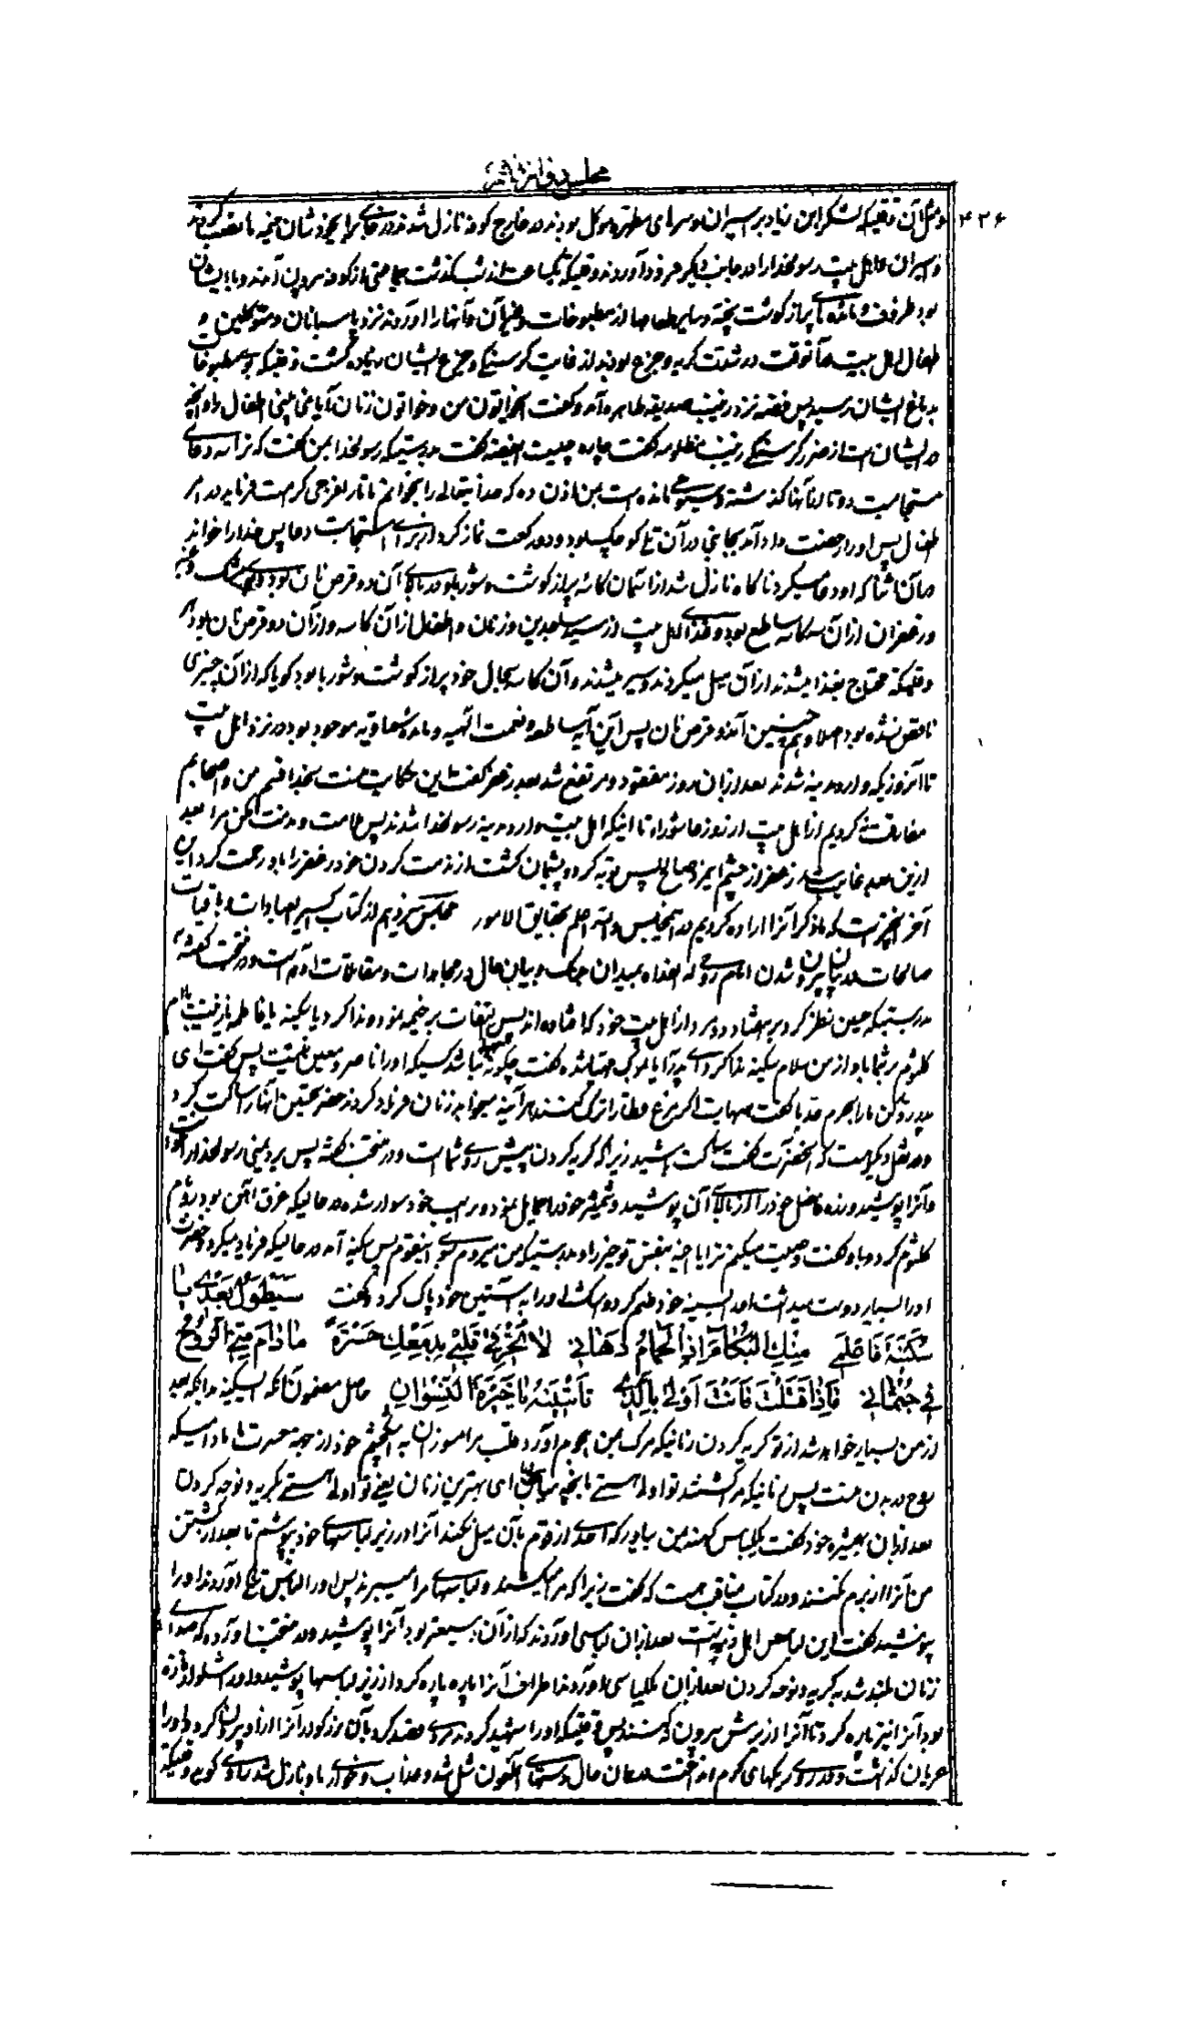 مجلس دوازدهم
۴۲۶
آن وقتیکه لشکر ابن زیاد بر اسیران و سرهای مطهره موکل بودند در خارج کوفه نازل شدند در جائی برای خودشان خیمه ها نصب کردند
و اسیران اهل بیت رسولخدا را در جانب دیگر فرود آوردند وقتیکه یکساعت از شب گذشت جماعتی از کوفه بیرون آمدند و با ایشان
بود ظروف پر از گوشت پخته و سایر طعامها از مطبوخات و غیر آن و آنها را آوردند نزد پاسبانان و متوکلین و
اطفال اهل بیت در آنوقت در شدت گریه و جزع بودند از غایت گرسنگی و جزع ایشان زیاده گشت وقتیکه بوی مطبوخات
بدماغ ایشان رسید پس فضه نزد زینب صدیقه طاهره آمد و گفت ایخاتون من و خاتون زنان آیا نمی بینی اطفال را و آنچه
در ایشان است از ضرر گرسنگی زینب مظلومه گفت چاره چیست ایفضه گفت بدرستیکه رسولخدا بمن گفت که ترا سه دعای
مستجاب است دو تا از آنها گذشته و سیومی مانده است بمن اذن ده که خدایتعالی را بخوانم تا ما را فرجی کرامت فرماید در امر
اطفال پس او را رخصت داد آمد بجائی در آن تل کوچک بود و دو رکعت نماز کرد از برای استجابت دعا پس خدا را خواند
در آن اثنا که او دعا میکرد ناگاه نازل شد از آسمان کاسه پر از گوشت و شوربا و در بالای آن دو قرص نان بود و بوی مشک و عنبر
و زعفران از آن کاسه ساطع بود و غذای اهل بیت از سید ساجدین و زنان و اطفال از آن کاسه و از آن دو قرص نان بود
وقتیکه محتاج بغذا میشدند از آن میل میکردند و سیر میشدند و آن کاسه بحال خود پر از گوشت و شوربا بود گویا که از آن چیزی
ناقص نشده بود اصلا و همچنین آندو قرص نان پس این آیه ساطعه و نعمت الهیه و مائده سماویه موجود بود در نزد اهل بیت
تا آنروزیکه وارد مدینه شدند بعد از آن روز مفقود و مرتفع شد بعد زعفر گفت این حکایت منست بخدا قسم من و اصحابم
مفارقت نکردیم از اهل بیت از روز عاشوراء تا اینکه اهل بیت وارد مدینه رسولخدا شدند پس ملامت و مذمت مکن مرا بعد
از این بعد غایب شد زعفر از چشم پس توبه کرد و پشیمان گشت از مذمت کردن خود زعفر را باد رحمت کرد این
آخر آنچیز است که ما ذکر آنرا اراده کردیم در اینمجلس والله اعلم بحقایق الامور مجلس سیزدهم از کتاب اکسیر العبادات و باقیات
صالحات در بیان بیرون شدن امام روحی له الفداه بمیدان جنگ و بیان حال در مجاهدات و مقاتلات او آمد است و در منتخب گفته
بدرستیکه حسین نظر کرد بر هفتاد و دو مرد از اهل بیت خود که افتاده اند پس التفات بر خیمه نمود و ندا کرد یا سکینه یا فاطمه یا زینب یا ام
کلثوم بر شما باد از من سلام سکینه ندا کرد ای پدر آیا بمرگ مهیا شده گفت چگونه مهیا نباشد کسیکه او را ناصر و معین نیست پس گفت ای
پدر رد کن ما را بحرم جد ما گفت هیهات اگر مرغ قطا را ترک کنند هر آینه میخوابد زنان فریاد کردند حضرت حسین آنها را ساکت کرد
و در نقل دیگر است که آنحضرت گفت ساکت باشید زیرا که گریه کردن پیش روی شما است و در منتخب گفته پس برد یمنی رسولخدا را
و آنرا پوشید و زره فاضل خود را از بالای آن پوشید و شمشیر خود را حمایل نمود و بر اسب خود سوار شد در حالیکه غرق آهن بود بر ام
کلثوم کرد و باو گفت وصیت میکنم ترا یا اخیه بنفس تو خیر را و بدرستیکه من میروم بسوی اینقوم پس سکینه آمد در حالیکه فریاد میکرد و حضرت
او را بسیار دوست میداشت او را بسینه خود ضم کرد و اشک او را به آستین خود پاک کرد و گفت سَیَطُولُ بَعْدِی یَا
سَکِینَةُ فَاعْلَمِی مِنْکِ الْبُکَاءُ إِذَا الْحِمَامُ دَهَانِی لَا تُحْرِقِی قَلْبِی بِدَمْعِکِ حَسْرَةً مَا دَامَ مِنِّی الرُّوحُ
فِی جُثْمَانِی فَإِذَا قُتِلْتُ فَأَنْتِ أَوْلَى بِالَّذِی تَأْتِینَهُ یَا خَیْرَةَ النِّسْوَانِ حاصل مضمون آنکه ای سکینه بدانکه بعد
از من بسیار خواهد شد از تو گریه کردن زمانیکه مرگ بمن هجوم آورد قلب مرا مسوزان به اشک چشم خود از جهة حسرت مادامیکه
روح در بدن منست پس زمانیکه مرا کشتند تو اولی هستی تا بآنچه میآئی ای بهترین زنان یعنی تو اولی هستی بگریه و نوحه کردن
بعد از آن بهمشیره خود گفت یکلباس کهنه بمن بیاور که احدی از قوم بآن میل نکند آنرا در زیر لباسهای خود بپوشم تا بعد از کشتن
من آنرا از برم نکنند و در کتاب مناقب است که گفت زیرا که مرا میکشند و لباسهای مرا میبرند پس او را لباس تنگ آوردند او را
نپوشید گفت این لباس اهل ذمه است بعد از آن لباسی آوردند که از آن وسیعتر بود آنرا پوشید و در منتخب آورده که صدای
زنان بلند شد بگریه و نوحه کردن بعد از آن یکلباسی آوردند اطراف آنرا پاره پاره کرد از زیر لباسها پوشید و او را شلوار تازه
بود آنرا نیز پاره کرد تا آنرا از زیرش بیرون نکنند پس وقتیکه او را شهید کردند مردی قصد کرد بآن مزدور آنرا از او بیرون کرد و او را
عریان گذاشت در روی ریگهای گرم انداخت در همان حال دستهای آنملعون شل شد و عذاب و خواری باو نازل شد راوی گوید وقتیکه